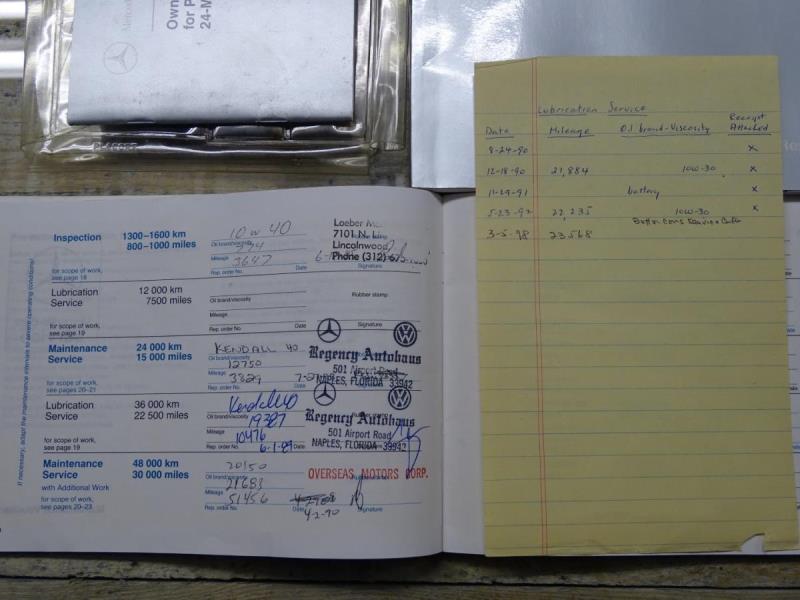 Mercedes
Own
for P
24-M
Inspection
1300–1600 km
800–1000 miles
for scope of work,
see page 18
10 w 40
Oil brand/viscosity
Mileage
3647
Rep. order No.
Date
Signature
Loeber M
7101 N.
Lincolnwood,
Phone (312) 67
Lubrication
Service
12 000 km
7500 miles
for scope of work,
see page 19
Oil brand/viscosity
Mileage
Rep. order No.
Date
Rubber stamp
Signature
Maintenance
Service
24 000 km
15 000 miles
for scope of work,
see pages 20–21
KENDALL 40
Oil brand/viscosity
12750
Mileage
3329
Rep. order No.
Date
Regency Autohaus
501 Airport Road
NAPLES, FLORIDA 33942
Lubrication
Service
36 000 km
22 500 miles
for scope of work,
see page 19
Kendall 40
Oil brand/viscosity
19387
Mileage
10476
Rep. order No.
6-1-89
Regency Autohaus
501 Airport Road
NAPLES, FLORIDA 33942
Maintenance
Service
with Additional Work
48 000 km
30 000 miles
for scope of work,
see pages 20–23
20/50
Oil brand/viscosity
21683
Mileage
51456
Rep. order No.
Date
4-2-90
OVERSEAS MOTORS CORP.
If necessary, adapt the maintenance intervals to severe operating conditions!
Lubrication Service
Date Mileage Oil brand-Viscosity Receipt Attached
8-24-90 x
12-18-90 21,884 10W-30 x
11-29-91 battery x
5-23-92 22,235 10W-30 x
3-5-98 23,568